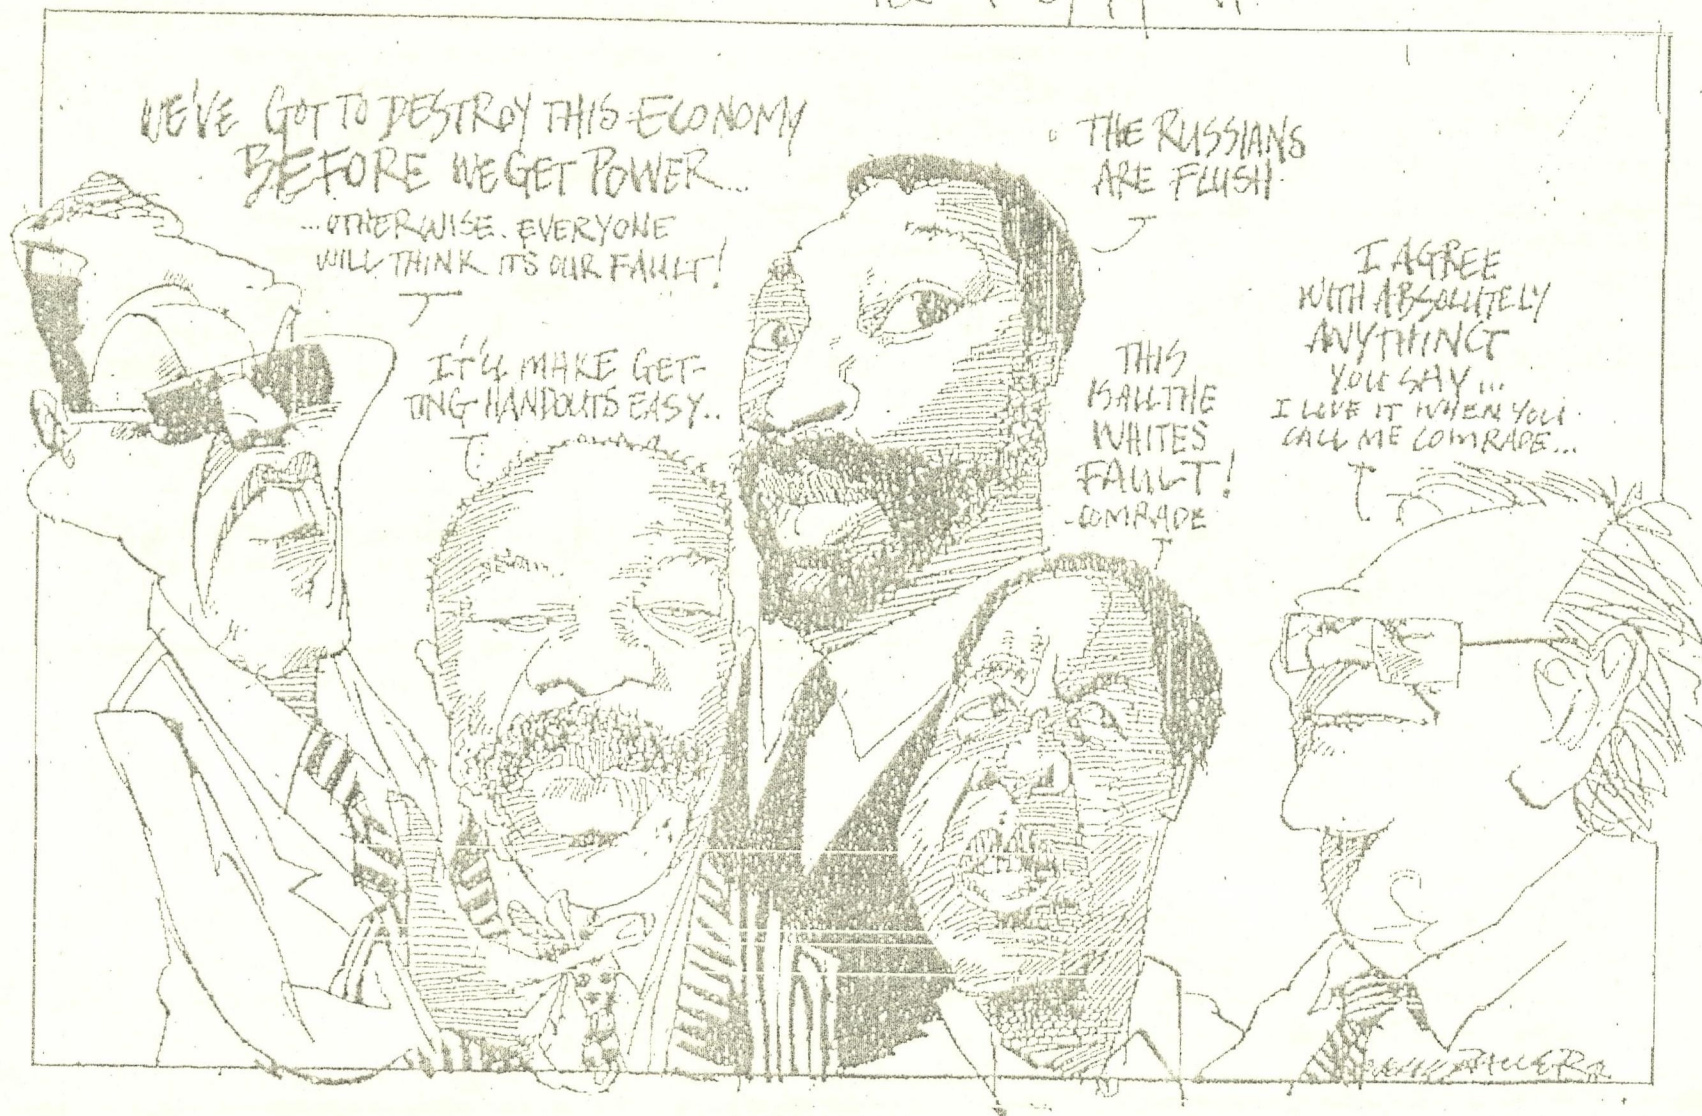 WE'VE GOT TO DESTROY THIS ECONOMY
BEFORE WE GET POWER...
...OTHERWISE. EVERYONE
WILL THINK ITS OUR FAULT!
IT'LL MAKE GET-
TING HANDOUTS EASY..
THE RUSSIANS
ARE FLUSH
THIS
IS ALL THE
WHITES
FAULT!
COMRADE
I AGREE
WITH ABSOLUTELY
ANYTHING
YOU SAY...
I LOVE IT WHEN YOU
CALL ME COMRADE...